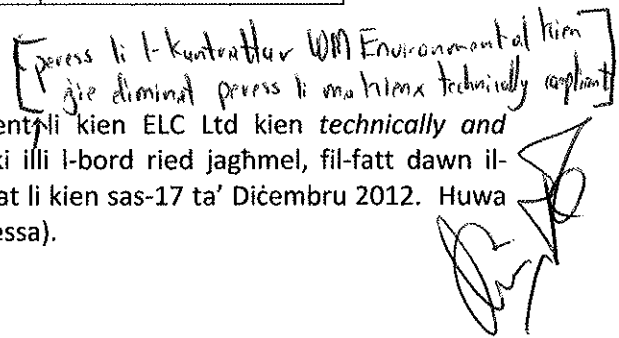 [peress li l-kuntrattur WM Environmental kien
ġie eliminat peress li ma kienx technically compliant]
ent li kien ELC Ltd kien technically and
ki illi l-bord ried jagħmel, fil-fatt dawn il-
at li kien sas-17 ta' Diċembru 2012. Huwa
essa).